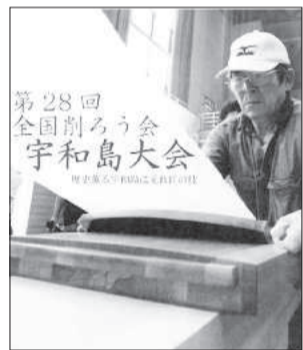 第28回
全国削ろう会
宇和島大会